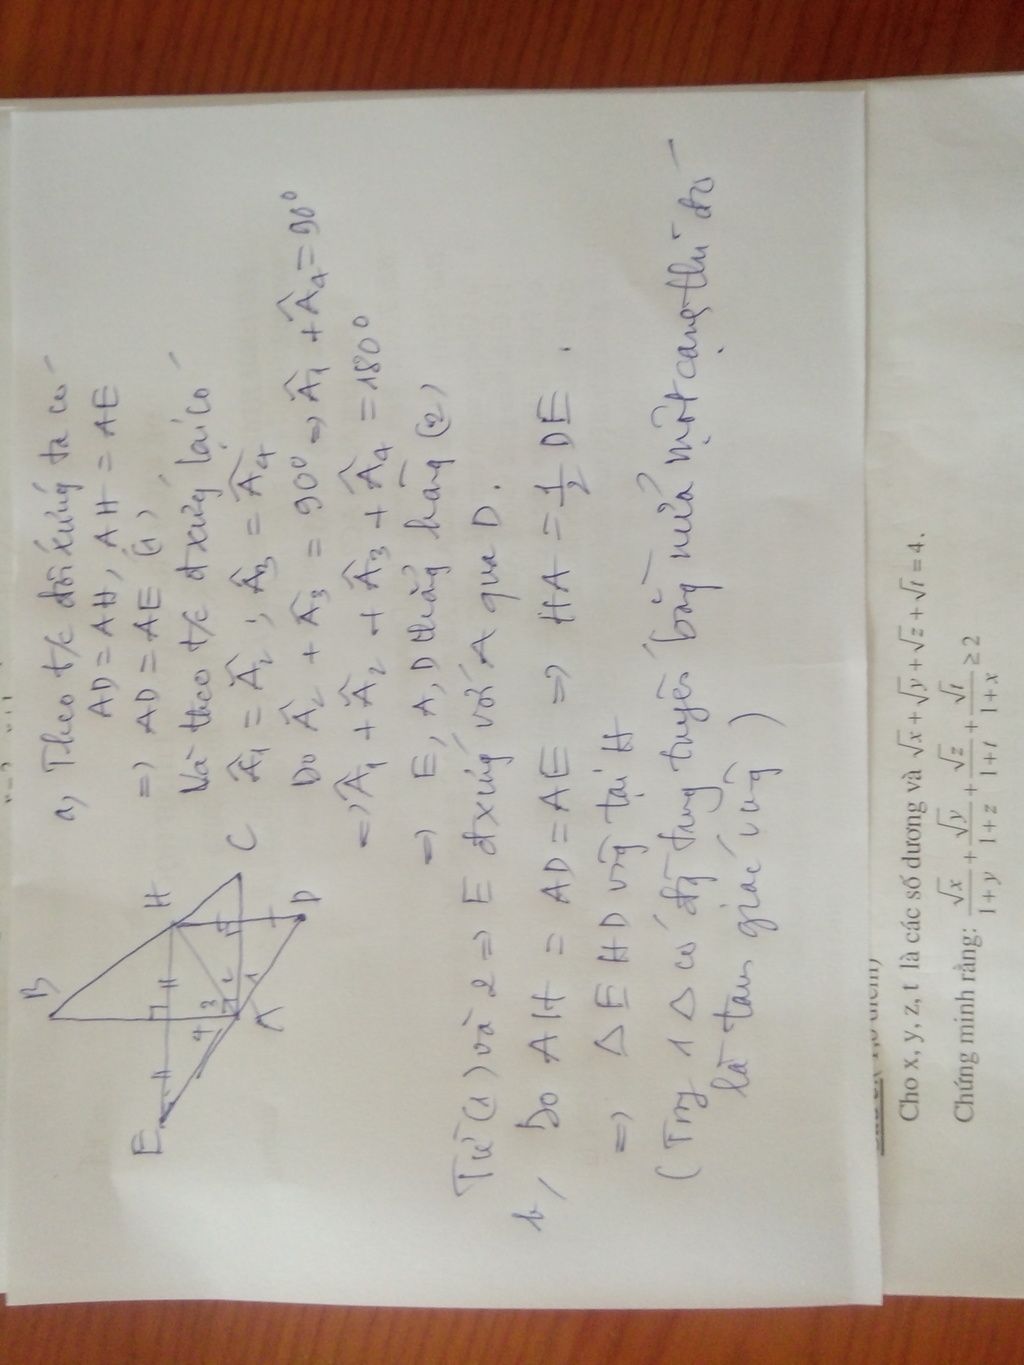 a, Theo t/c đối xứng ta có
AD = AH, AH = AE
=> AD = AE (1)
Và theo t/c đ xứng lại có
Â1 = Â2 ; Â3 = Â4
Do Â2 + Â3 = 90° => Â1 + Â4 = 90°
=> Â1 + Â2 + Â3 + Â4 = 180°
=> E, A, D thẳng hàng (2)
Từ (1) và 2 => E đ xứng với A qua D.
b, Do AH = AD = AE => HA = 1/2 DE.
=> Δ EHD vg tại H
(Trg 1 Δ có đg trung tuyến bằng nửa một cạnh thì đó
là tam giác vuông)
B
E
H
4
3
2
1
A
C
D
Cho x, y, z, t là các số dương và √x + √y + √z + √t = 4.
Chứng minh rằng: √x/(1+y) + √y/(1+z) + √z/(1+t) + √t/(1+x) ≥ 2